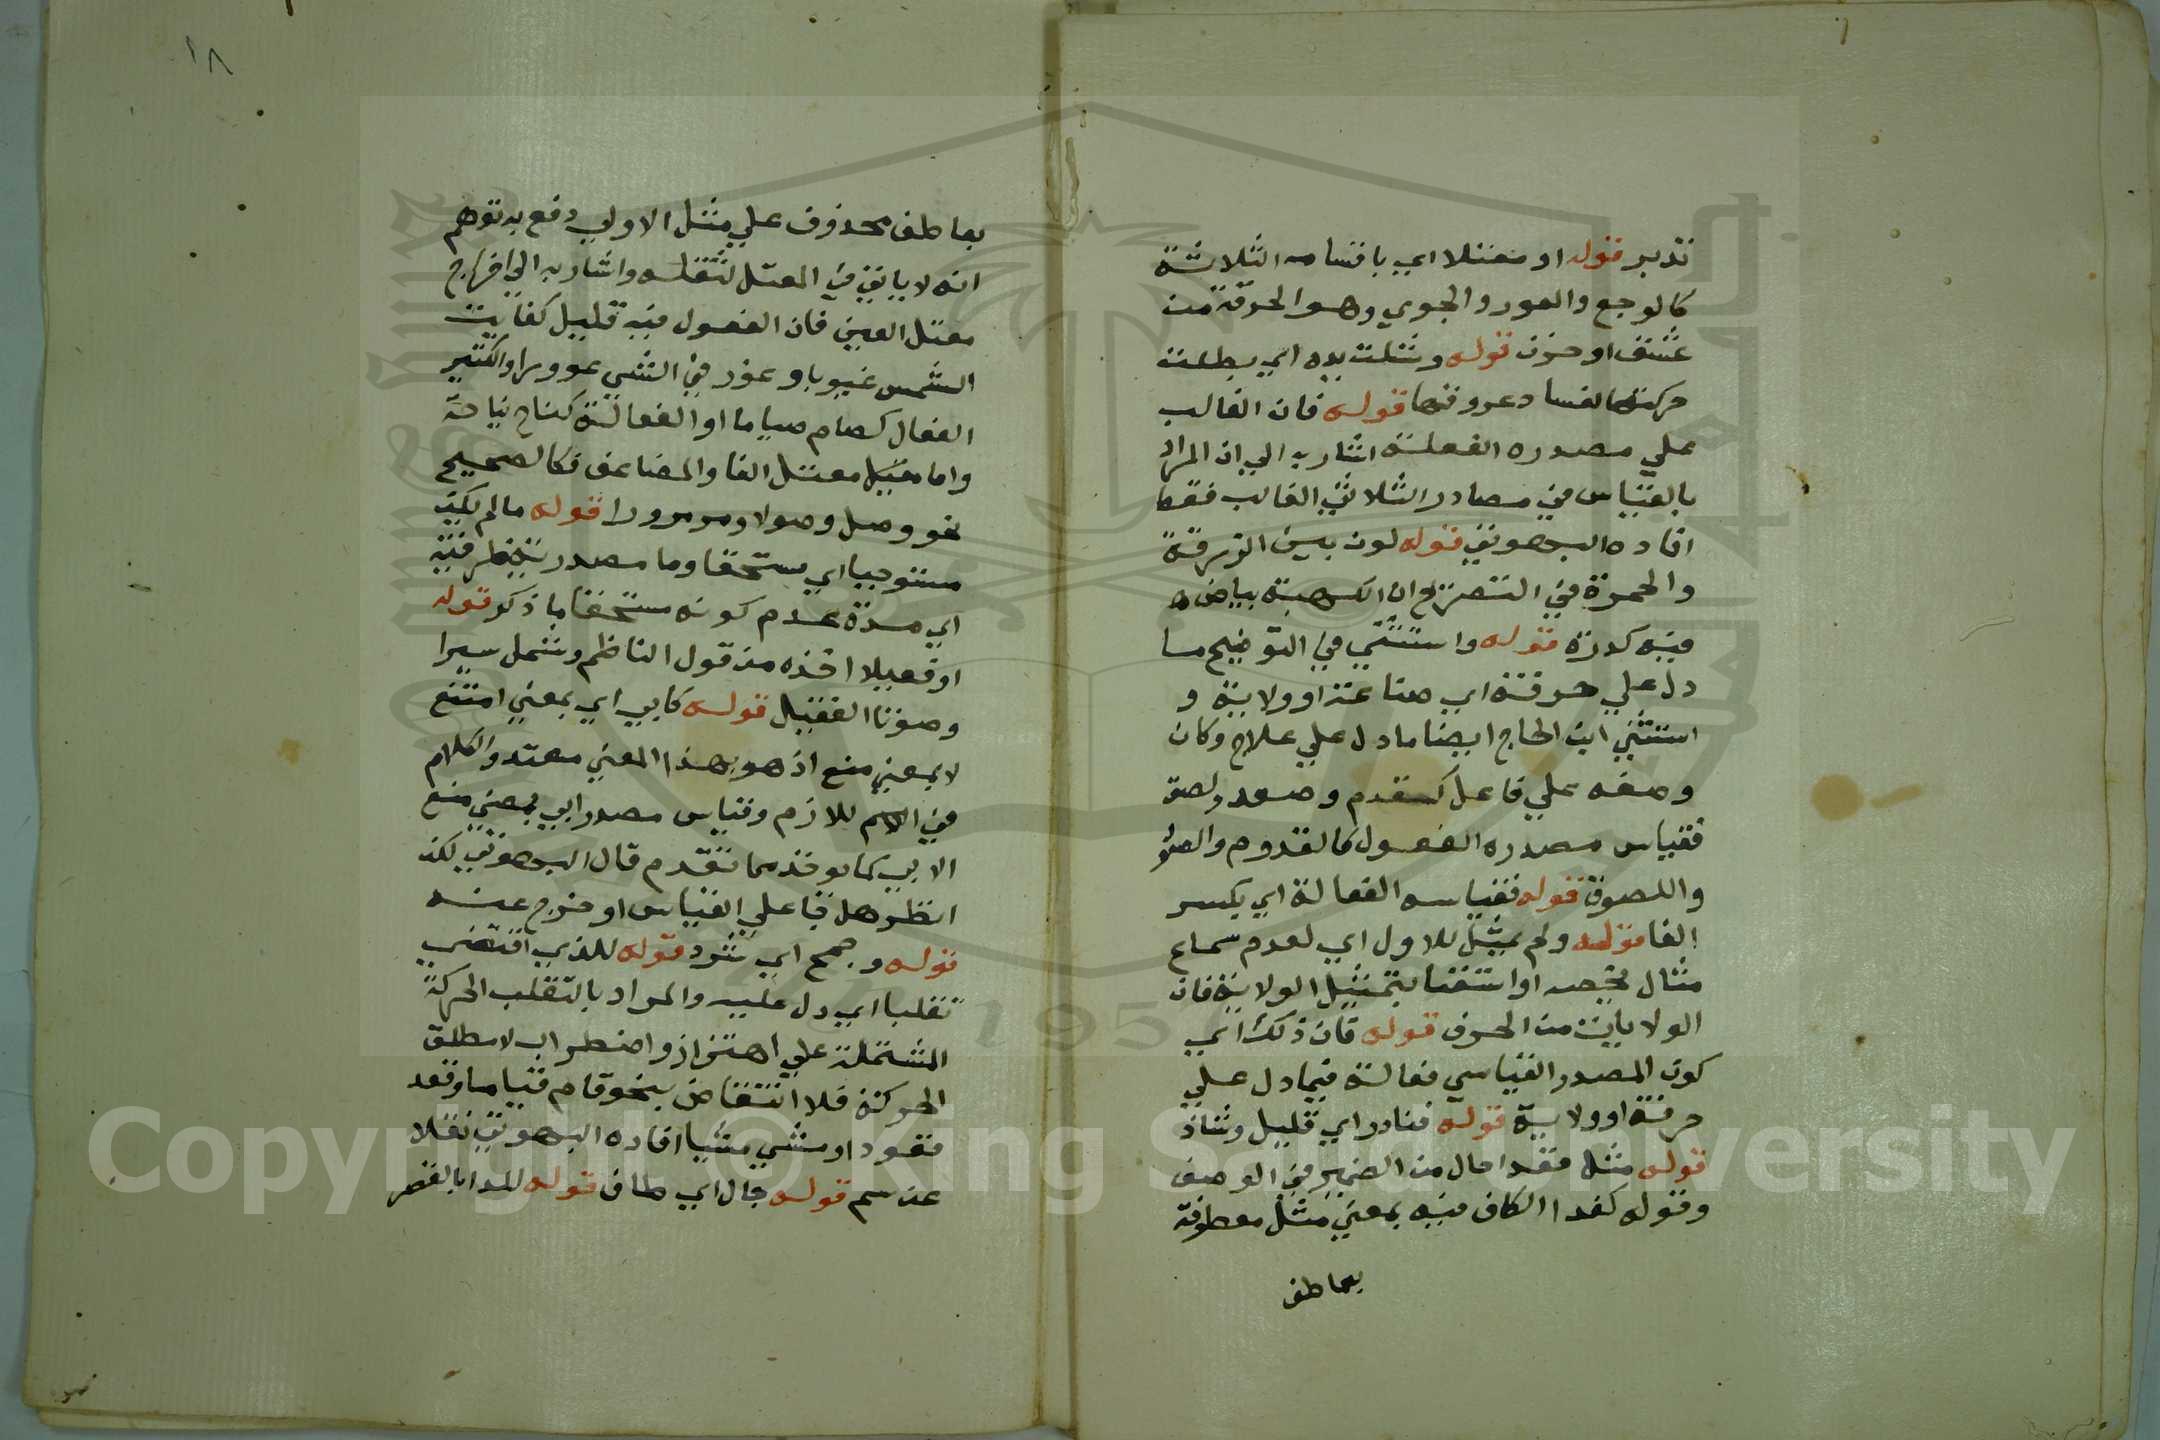 تدبر قوله او معتلا اي باقسامه الثلاثة
كالوجع والعور والجوي وهو الحرقة من
عشق او حزن قوله وشلت يده اي بطلت
حركتها لفساد عروقها قوله فان الغالب
علي مصدره الفعلة اشار به الي ان المراد
بالقياس في مصادر الثلاثي الغالب فقط
افاده البهوتي قوله لون بين الزرقة
والحمرة في التصريح ان الكهبة بياض
فيه كدرة قوله واستثني في التوضيح ما
دل علي حرفة اي صناعة او ولاية و
استثني ابن الحاج ايضا ما دل علي علاج وكان
وصفه علي فاعل كقدم وصعد ولصق
فقياس مصدره الفعول كالقدوم والصعود
واللصوق قوله فقياسه الفعالة اي بكسر
الفا قوله ولم يمثل للاول اي لعدم سماع
مثال يخصه او استغنا بتمثيل الولاية فان
الولايات من الحرف قوله فان ذلك اي
كون المصدر القياسي فعالة فيما دل علي
حرفة او ولاية قوله فنادر اي قليل وشاذ
قوله مثل فقد احال من الضمير في الوصف
وقوله كغدا الكاف فيه بمعني مثل معطوفة
بعاطف
١٨
بعاطف محذوف علي مثل الاولي دفع به توهم
انه لا ياتي في المعتل لثقله واشار به الي اخراج
معتل العين فان الفعول فيه قليل كغابت
الشمس غيوبا وغور في الشي غوورا والكثير
الفعال كصام صياما او الفعالة كناح نياحة
واما معتل الفا والمضاعف فكالصحيح
نحو وصل وصولا ومر مرورا قوله ما لم يكن
مستوجبا اي مستحقا وما مصدرية ظرفية
اي مدة عدم كونه مستحقا ما ذكر قوله
او فعيلا اخذه من قول الناظم وشمل سيرا
وصوتا الفعيل قوله كابي اي بمعني امتنع
لا بمعني منع اذ هو بهذا المعني معتد والكلام
في اللازم وقياس مصدر ابي بمعني منع
الابي كما يوخذ مما تقدم قال البهوتي لكن
انظر هل جا علي القياس او خرج عنه
قوله وجمح اي شرد قوله للذي اقتضي
تقلبا اي دل عليه والمراد بالتقلب الحركة
المشتملة علي اهتزاز واضطراب لا مطلق
الحركة فلا انتقاض بنحو قام قياما وقعد
قعودا ومشي مشيا افاده البهوتي نقلا
عن سم قوله جال اي طاف قوله للدا بالقصر